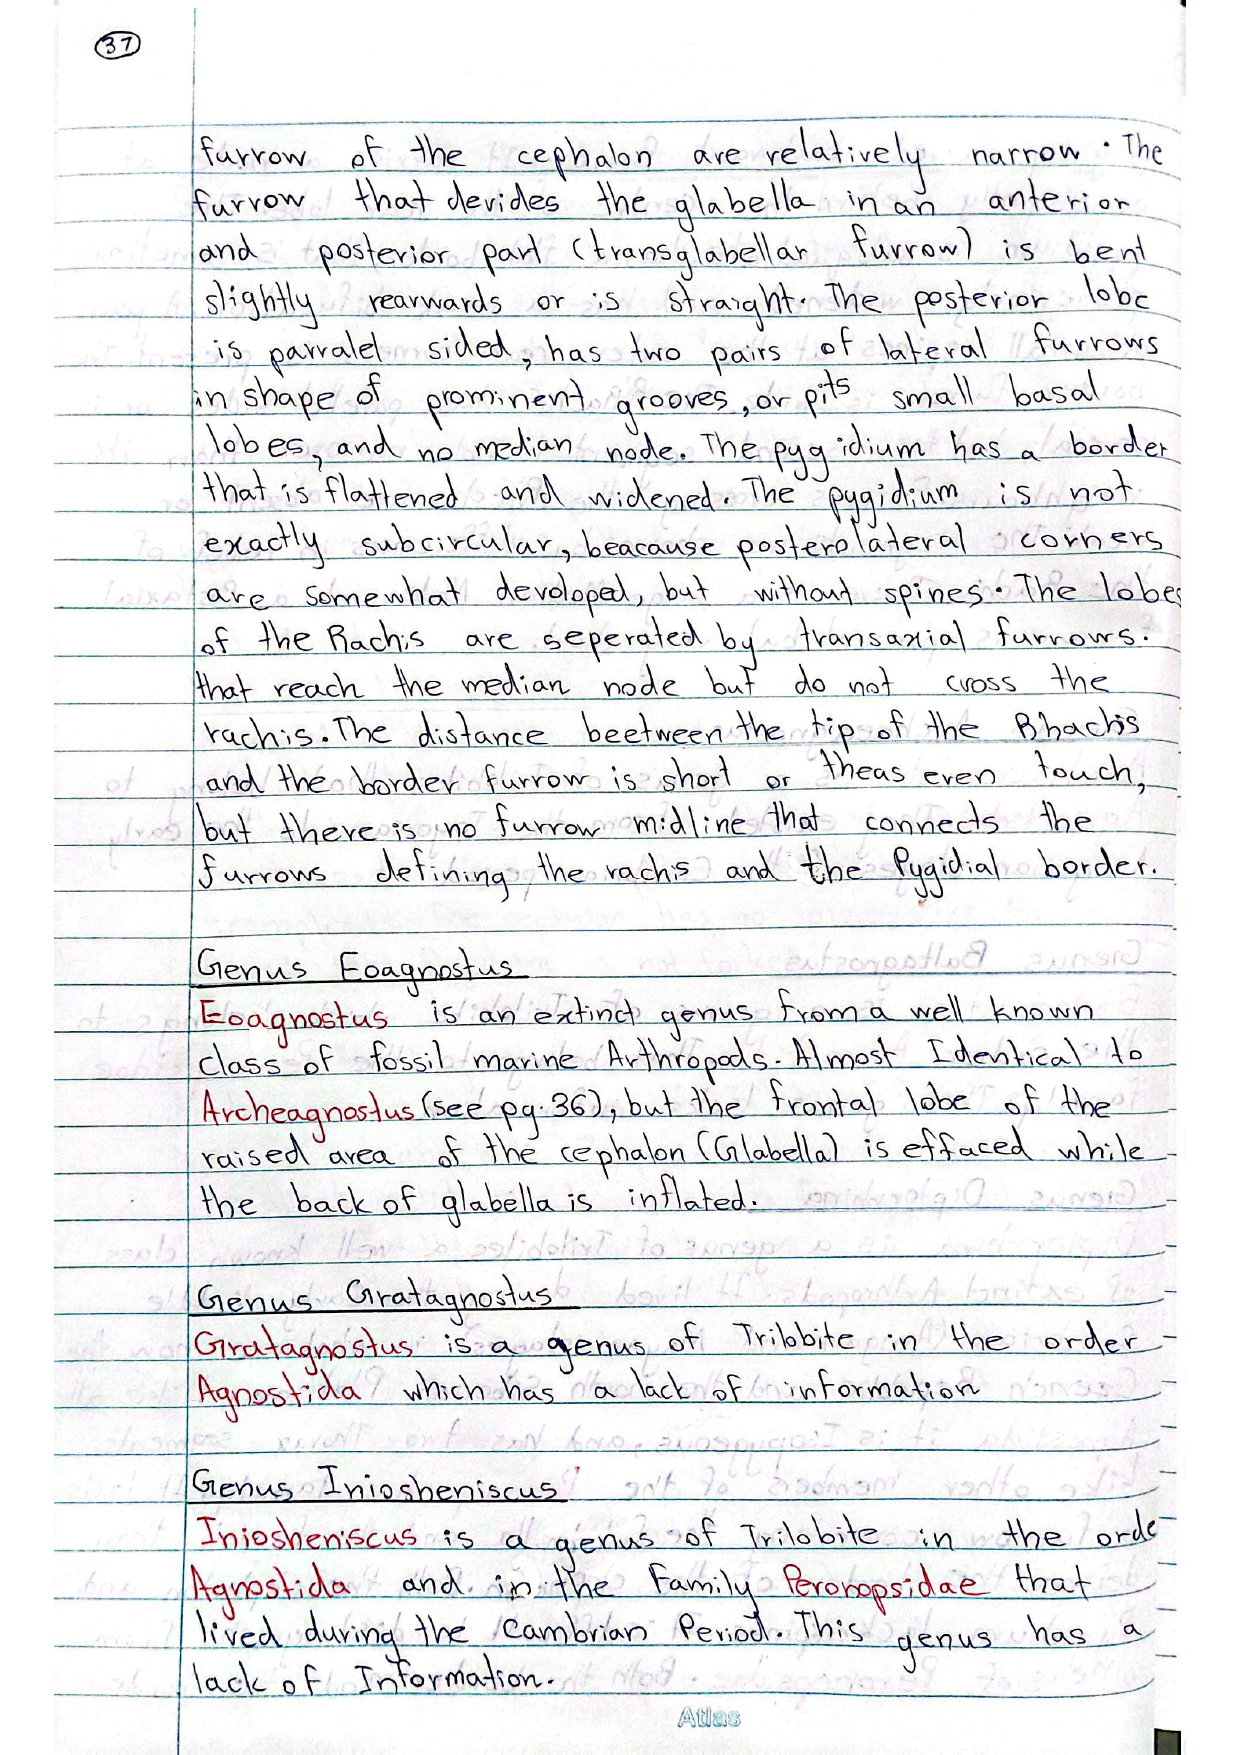 37
furrow of the cephalon are relatively narrow. The
furrow that devides the glabella in an anterior
and posterior part (transglabellar furrow) is bent
slightly rearwards or is straight. The posterior lobe
is parralel sided, has two pairs of lateral furrows
in shape of prominent grooves, or pits small basal
lobes, and no median node. The pygidium has a border
that is flattened and widened. The pygidium is not
exactly subcircular, beacause posterolateral corners
are somewhat devoloped, but without spines. The lobes
of the Rachis are seperated by transaxial furrows.
that reach the median node but do not cross the
rachis. The distance beetween the tip of the Rhachis
and the border furrow is short or theas even touch,
but there is no furrow midline that connects the
furrows defining the rachis and the Pygidial border.
Genus Eoagnostus
Eoagnostus is an extinct genus from a well known
class of fossil marine Arthropods. Almost Identical to
Archeagnostus (see pg. 36), but the frontal lobe of the
raised area of the cephalon (Glabella) is effaced while
the back of glabella is inflated.
Genus Gratagnostus
Gratagnostus is a genus of Trilobite in the order
Agnostida which has a lack of information
Genus Iniosheniscus
Iniosheniscus is a genus of Trilobite in the orde
Agnostida and in the Family Peronopsidae that
lived during the Cambrian Period. This genus has a
lack of Information.
Atlas